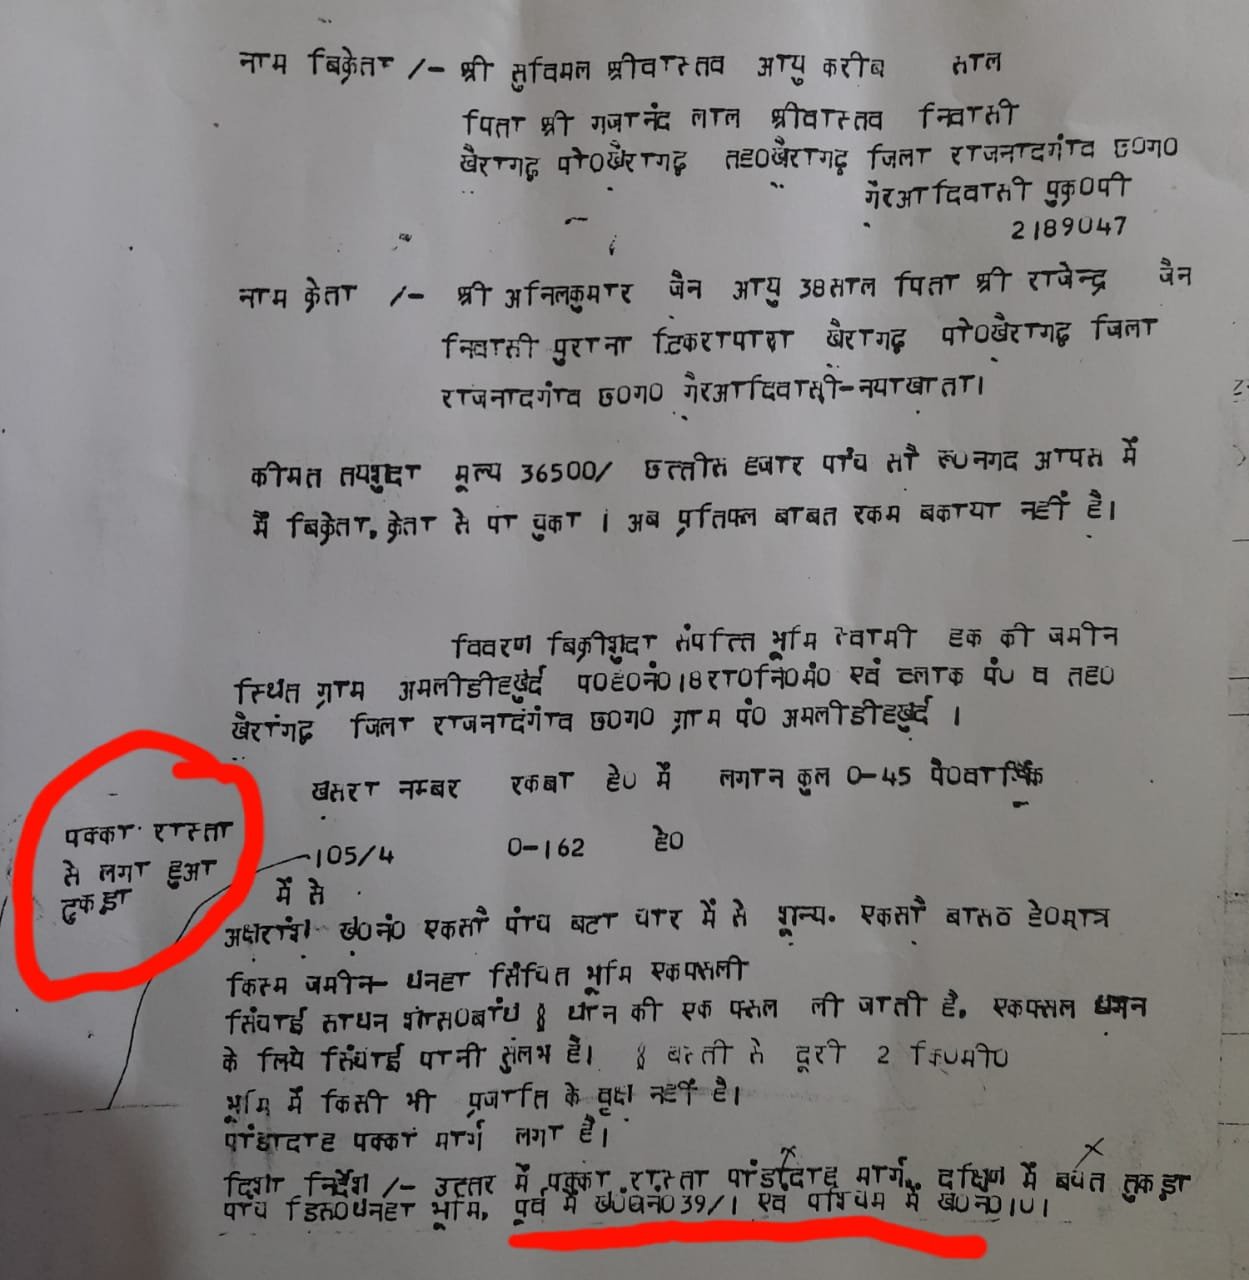 नाम बिक्रेता /- श्री सुविमल श्रीवास्तव आयु करीब साल
पिता श्री गजानंद लाल श्रीवास्तव निवासी
खैरागढ़ पो0खैरागढ़ तह0खैरागढ़ जिला राजनादगांव छ0ग0
गैरआदिवासी पुक्र0पी
2189047
नाम क्रेता /- श्री अनिलकुमार जैन आयु 38साल पिता श्री राजेन्द्र जैन
निवासी पुराना टिकरापारा खैरागढ़ पो0खैरागढ़ जिला
राजनादगांव छ0ग0 गैरआदिवासी-नयाखाता।
कीमत तयशुदा मूल्य 36500/ छत्तीस हजार पांच सौ रू0नगद आपस में
मैं बिक्रेता, क्रेता से पा चुका । अब प्रतिफल बाबत रकम बकाया नहीं है।
विवरण बिक्रीशुदा संपत्ति भूमि स्वामी हक की जमीन
स्थित ग्राम अमलीडीहखुर्द प0ह0नं018रा0नि0मं0 एवं ब्लाक पं0 व तह0
खैरागढ़ जिला राजनादगांव छ0ग0 ग्राम पं0 अमलीडीहखुर्द ।
खसरा नम्बर रकबा हे0 में लगान कुल 0-45 पै0वार्षिक
पक्का रास्ता
से लगा हुआ
टुकड़ा
105/4 0-162 हे0
में से
अक्षरांश ख0नं0 एकसौ पांच बटा चार में से शून्य. एकसौ बासठ हे0मात्र
किस्म जमीन- धनहा सिंचित भूमि एकफसली
सिंचाई साधन शा0स0बांध 8 धान की एक फसल ली जाती है. एकफसल धान
के लिये सिंचाई पानी सुलभ है। 8 बस्ती से दूरी 2 कि0मी0
भूमि में किसी भी प्रजाति के वृक्ष नहीं है।
पांडादाह पक्का मार्ग लगा है।
दिशा निर्देश /- उत्तर में पक्का रास्ता पांडादाह मार्ग, दक्षिण में बचत तुकड़ा
पांच डिस0धनहा भूमि, पूर्व में 39/1 एवं पश्चिम में ख0न0